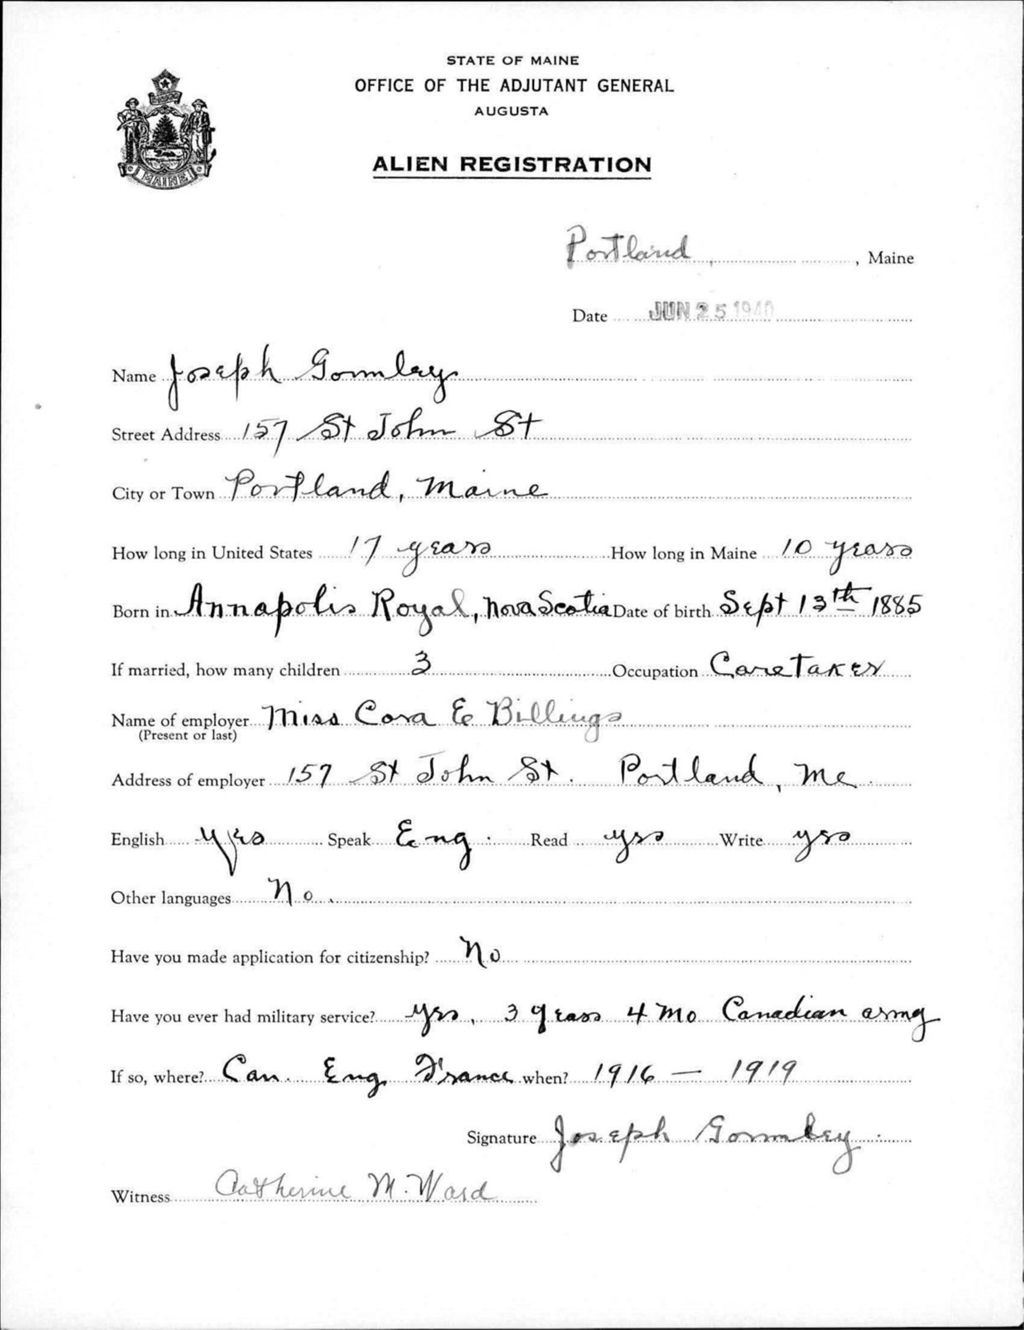 STATE OF MAINE
OFFICE OF THE ADJUTANT GENERAL
AUGUSTA
ALIEN REGISTRATION
MAINE
Portland, , Maine
Date JUN 25 1940
Name Joseph Gormley
Street Address 157 St John St
City or Town Portland, Maine
How long in United States 17 years How long in Maine 10 years
Born in Annapolis Royal, Nova Scotia Date of birth Sept 13th 1885
If married, how many children 3 Occupation Caretaker
Name of employer Miss Cora E Billings
(Present or last)
Address of employer 157 St John St. Portland, Me.
English Yes Speak Eng. Read yes Write yes
Other languages No.
Have you made application for citizenship? No
Have you ever had military service? yes, 3 years 4 Mo Canadian army
If so, where? Can. Eng. France when? 1916 — 1919
Signature Joseph Gormley.
Witness Catherine M. Ward